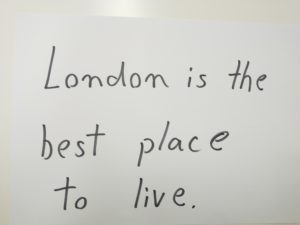 London is the
best place
to live.